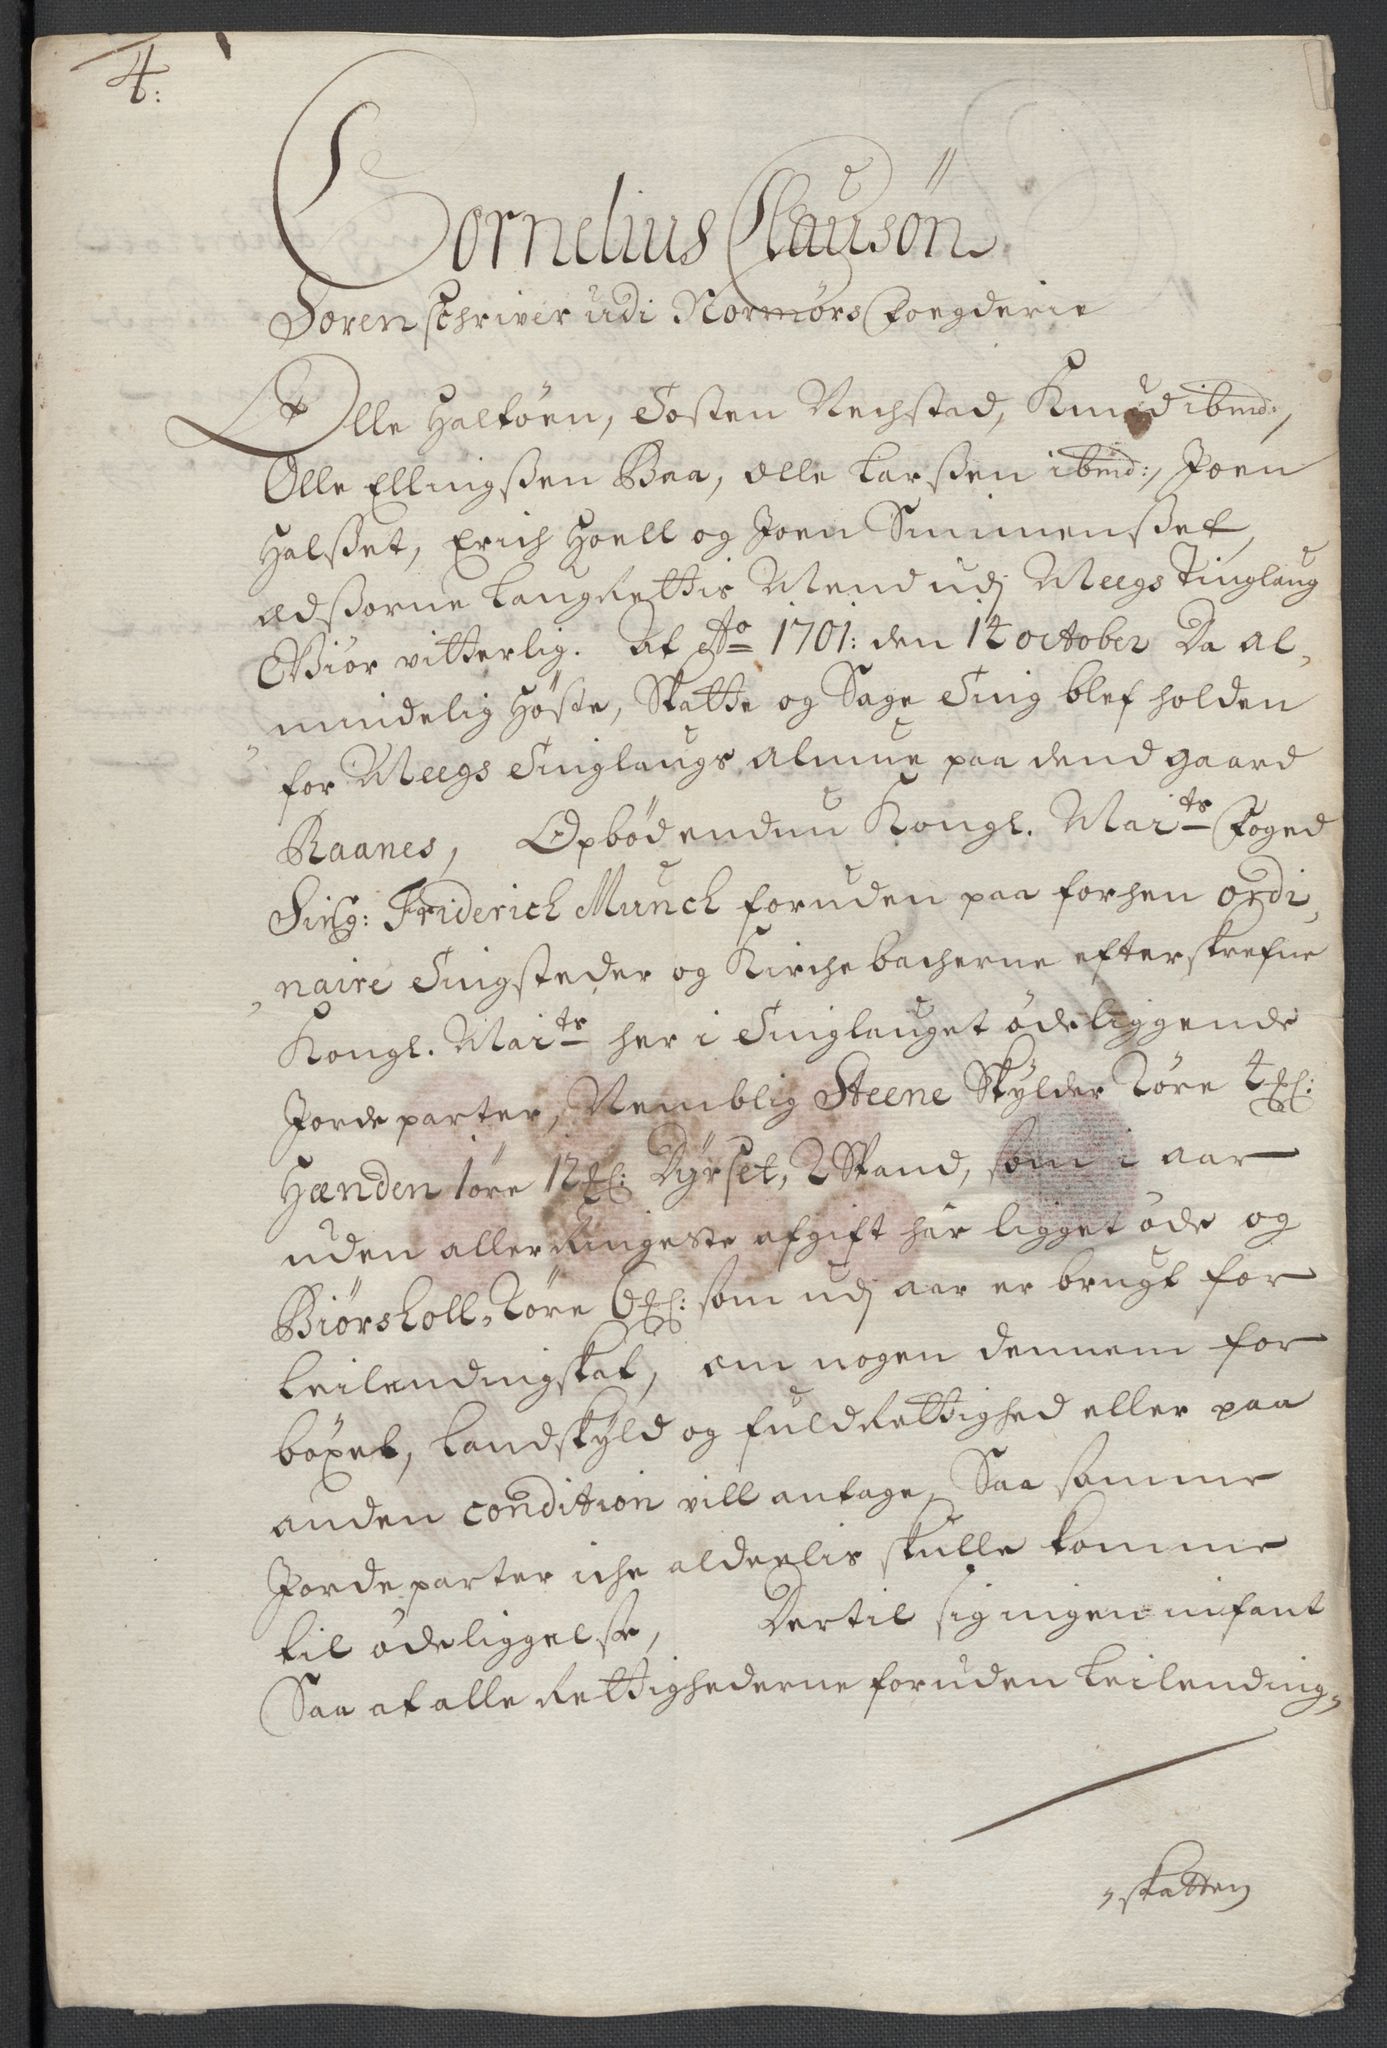 4:
Cornelius Clausøn
Sorenschriver udi Normørs Fogderie
Olle Haltøen, Tosten Rechstad, Knud ibmd:,
Olle Ellingsßen Bæa, Olle Larßen ibmd:, Joen
Halßet, Erich Hoell og Joen Smimenßet,
Edßorne LaugRettis Mend udj Meegs Tinglaug
Giør vitterlig. At Ao 1701: den 14 october Da al,
mindelig Høste, Skatte og Sage Ting blef holden
for Meegs Tinglaugs almue paa dend gaard
Raanes, Opbød endnu Kongl. Maits Foged
Sing: Friderich Munch foruden paa forhen ordi,
naire Tingsteder og Kirchebacherne efterskrefne
Kongl. Maits her i Tinglauget ødeliggende
Jordeparter, Nemblig Steene Skylder 2øre 4
Hænden 1øre 12 Dyrset, 2 Spand, som i aar
uden allerRingeste afgift har ligget øde og
Biørskoll 2øre 6 som udj aar er brugt for
Leilendingskat, om nogen dennem for
böxel, Landskyld og fuldRettighed eller paa
anden condition vill antage, Saa samme
Jordeparter iche alderlis skulle komme
til ødeliggelse, Dertil sig ingen infant
Saa at alle Rettighederne foruden Leilending,
, skatten